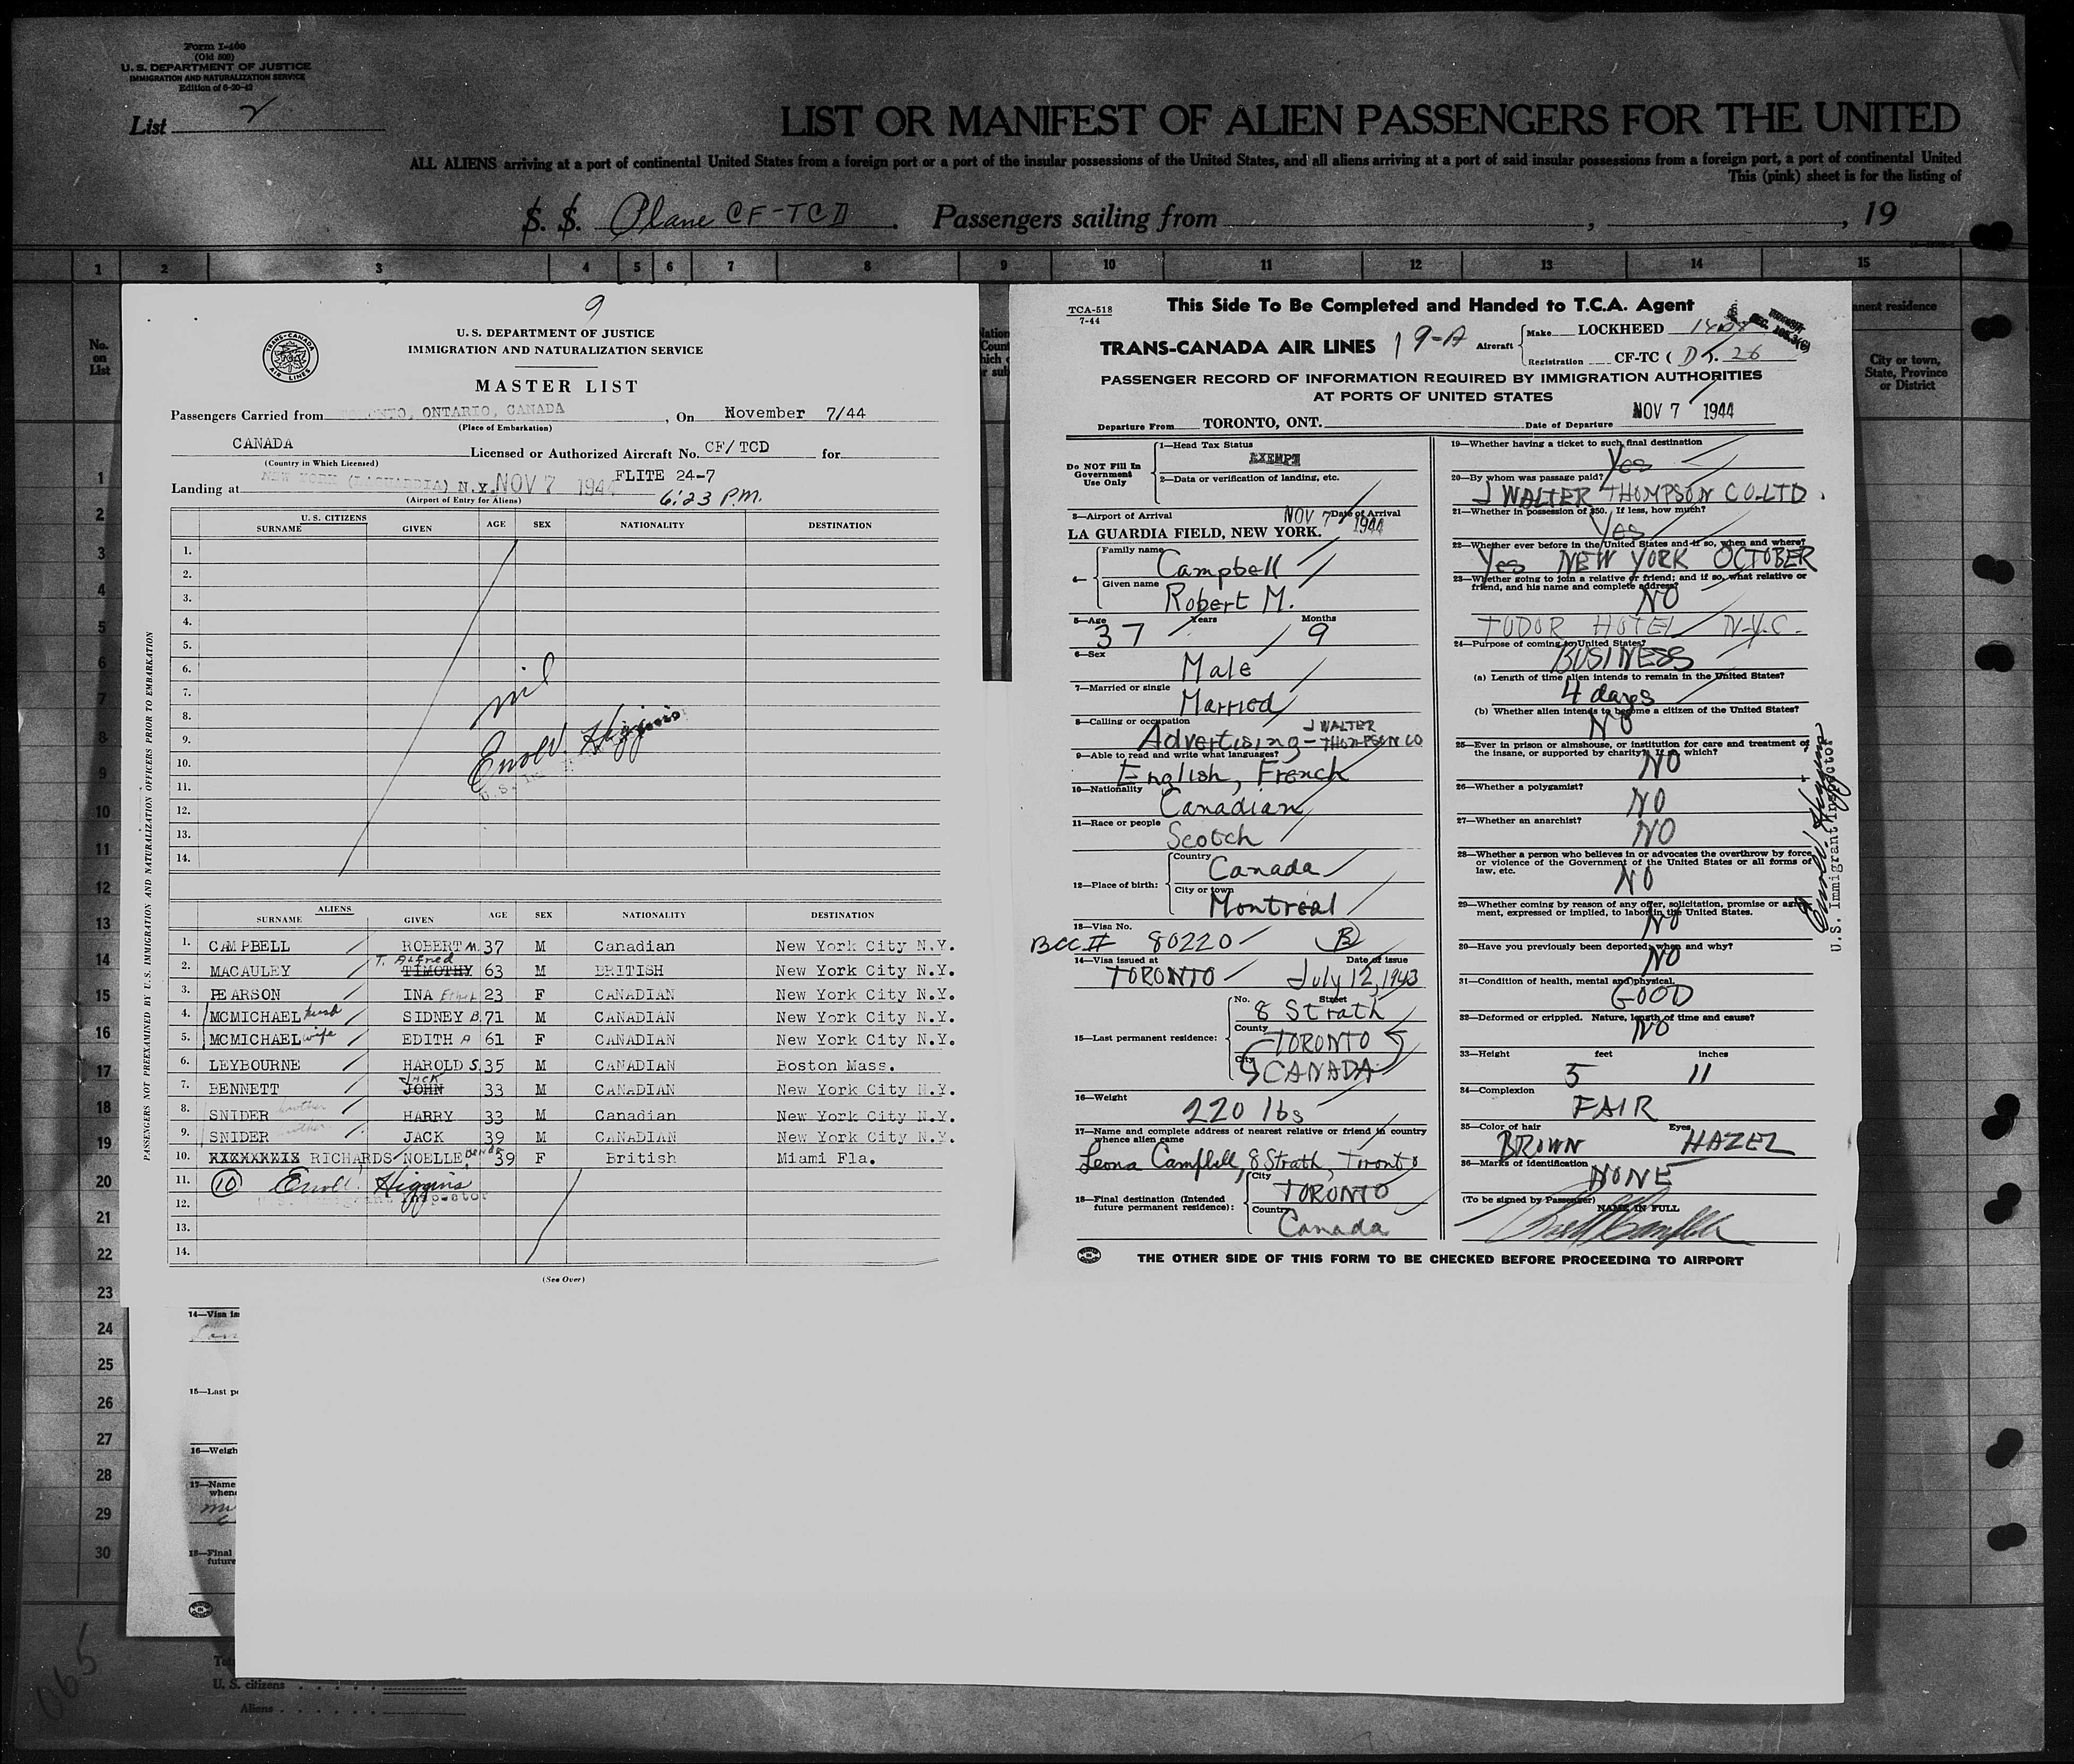 Form I-400
(Old 500)
U. S. DEPARTMENT OF JUSTICE
IMMIGRATION AND NATURALIZATION SERVICE
Edition of 6-20-43
List 2
LIST OR MANIFEST OF ALIEN PASSENGERS FOR THE UNITED
ALL ALIENS arriving at a port of continental United States from a foreign port or a port of the insular possessions of the United States, and all aliens arriving at a port of said insular possessions from a foreign port, a port of continental United
This (pink) sheet is for the listing of
S. S. Plane CF-TCD. Passengers sailing from , , 19
1 2 3 4 5 6 7 8 9 10 11 12 13 14 15
No. on List
nent residence
City or town, State, Province or District
1
2
3
4
5
6
7
8
9
10
11
12
13
14
15
16
17
18
19
20
21
22
23
24
25
26
27
28
29
30
9
TRANS-CANADA AIR LINES
U. S. DEPARTMENT OF JUSTICE
IMMIGRATION AND NATURALIZATION SERVICE
MASTER LIST
Passengers Carried from TORONTO, ONTARIO, CANADA, On November 7/44
(Place of Embarkation)
CANADA Licensed or Authorized Aircraft No. CF/TCD for
(Country in Which Licensed)
FLITE 24-7
Landing at NEW YORK (LAGUARDIA) N.Y. NOV 7 1944 6:23 P.M.
(Airport of Entry for Aliens)
PASSENGERS NOT PREEXAMINED BY U.S. IMMIGRATION AND NATURALIZATION OFFICERS PRIOR TO EMBARKATION
U. S. CITIZENS
SURNAME GIVEN AGE SEX NATIONALITY DESTINATION
1.
2.
3.
4.
5.
6.
7.
8.
9.
10.
11.
12.
13.
14.
nil
Errol Higgins
ALIENS
SURNAME GIVEN AGE SEX NATIONALITY DESTINATION
1. CAMPBELL ROBERT M. 37 M Canadian New York City N.Y.
2. MACAULEY T. Alfred TIMOTHY 63 M BRITISH New York City N.Y.
3. PEARSON INA Ethel 23 F CANADIAN New York City N.Y.
4. MCMICHAEL husb SIDNEY B. 71 M CANADIAN New York City N.Y.
5. MCMICHAEL wife EDITH A 61 F CANADIAN New York City N.Y.
6. LEYBOURNE HAROLD S. 35 M CANADIAN Boston Mass.
7. BENNETT Jack JOHN 33 M CANADIAN New York City N.Y.
8. SNIDER brother HARRY 33 M Canadian New York City N.Y.
9. SNIDER brother JACK 39 M CANADIAN New York City N.Y.
10. XXXXXXXIX RICHARDS NOELLE 39 F British Miami Fla.
11. (10) Errol Higgins
12. U.S. Immigrant Inspector
13.
14.
(See Over)
14—Visa is
15—Last pe
16—Weigh
17—Name
when
18—Final
future
U. S. citizens
Aliens
065
TCA-518
7-44
This Side To Be Completed and Handed to T.C.A. Agent
TRANS-CANADA AIR LINES 19-A Aircraft Make LOCKHEED 1408
Registration CF-TC ( D ). 26
PASSENGER RECORD OF INFORMATION REQUIRED BY IMMIGRATION AUTHORITIES
AT PORTS OF UNITED STATES
NOV 7 1944
Departure From TORONTO, ONT. Date of Departure
Do NOT Fill In Government Use Only
1—Head Tax Status
EXEMPT
2—Data or verification of landing, etc.
3—Airport of Arrival NOV 7 1944 Date of Arrival
LA GUARDIA FIELD, NEW YORK.
4— Family name Campbell
Given name Robert M.
5—Age 37 Years 9 Months
6—Sex Male
7—Married or single Married
8—Calling or occupation Advertising - J WALTER THOMPSON CO
9—Able to read and write what languages?
English, French
10—Nationality Canadian
11—Race or people Scotch
12—Place of birth: Country Canada
City or town Montreal
13—Visa No.
BCC # 80220 B
14—Visa issued at TORONTO Date of issue July 12, 1943
15—Last permanent residence: No. 8 Street Strath
County TORONTO
City CANADA
16—Weight 220 lbs
17—Name and complete address of nearest relative or friend in country whence alien came
Leona Campbell, 8 Strath, Toronto
18—Final destination (Intended future permanent residence): City TORONTO
Country Canada
19—Whether having a ticket to such final destination
Yes
20—By whom was passage paid?
J WALTER THOMPSON CO. LTD.
21—Whether in possession of $50. If less, how much?
Yes
22—Whether ever before in the United States and if so, when and where?
Yes NEW YORK OCTOBER
23—Whether going to join a relative or friend; and if so, what relative or friend, and his name and complete address?
NO
TUDOR HOTEL N.Y.C.
24—Purpose of coming to United States?
BUSINESS
(a) Length of time alien intends to remain in the United States?
4 days
(b) Whether alien intends to become a citizen of the United States?
NO
25—Ever in prison or almshouse, or institution for care and treatment of the insane, or supported by charity? If so, which?
NO
26—Whether a polygamist?
NO
27—Whether an anarchist?
NO
28—Whether a person who believes in or advocates the overthrow by force or violence of the Government of the United States or all forms of law, etc.
NO
29—Whether coming by reason of any offer, solicitation, promise or agreement, expressed or implied, to labor in the United States.
NO
30—Have you previously been deported; when and why?
NO
31—Condition of health, mental and physical.
GOOD
32—Deformed or crippled. Nature, length of time and cause?
NO
33—Height feet inches
5 11
34—Complexion
FAIR
35—Color of hair Eyes
BROWN HAZEL
36—Marks of identification
NONE
(To be signed by Passenger) NAME IN FULL
Errol Higgins
U.S. Immigrant Inspector
THE OTHER SIDE OF THIS FORM TO BE CHECKED BEFORE PROCEEDING TO AIRPORT